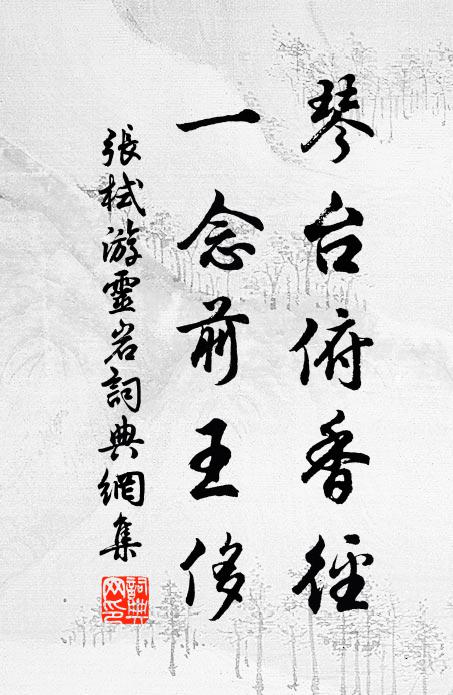 琴台俯香徑
一念前王侈
張栻游靈岩詞典網集
詞典网印